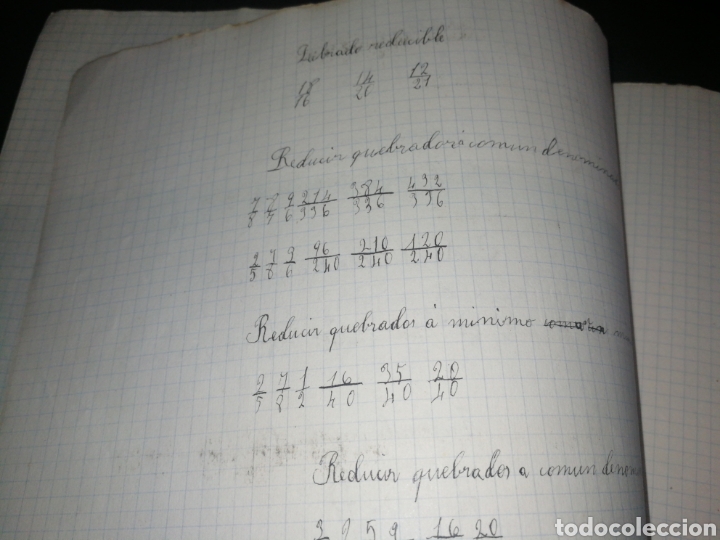 Quebrado reducible
14/21 12/21
Reducir quebrados à comun denomina
7/8 8/7 9/6 214/336 384/336 432/336
2/5 7/8 96/240 210/240 120/240
Reducir quebrados à minimo
2/5 7/8 1/2 16/40 35/40 20/40
Reducir quebrados a comun denom
2 5 9 16 20
todocoleccion